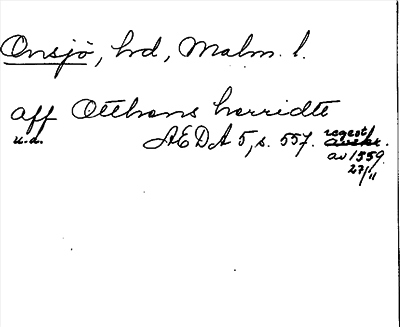 Onsjö, hd, Malm. l.
aff Otthens herridte
u.å. AEDA 5, s. 557. regest/
avskr.
av 1559
27/11